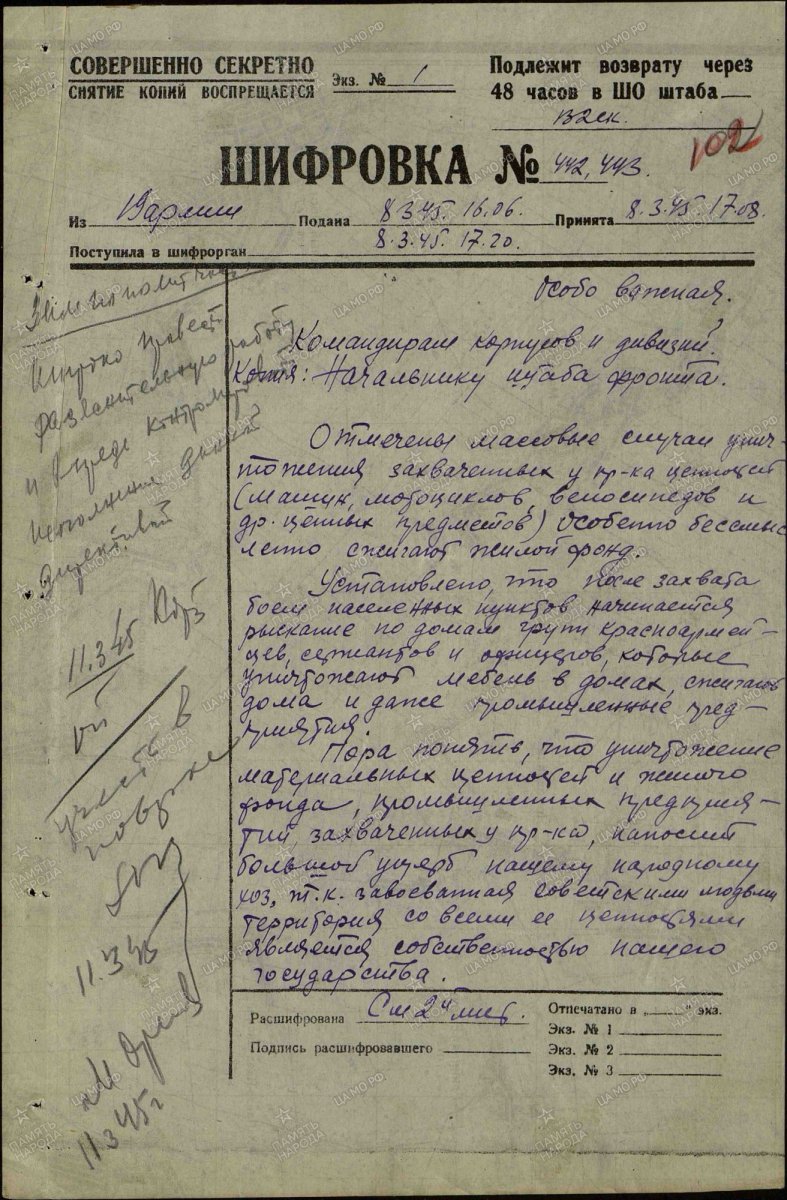 СОВЕРШЕННО СЕКРЕТНО
СНЯТИЕ КОПИЙ ВОСПРЕЩАЕТСЯ
Экз. № 1
Подлежит возврату через
48 часов в ШО штаба
ШИФРОВКА № 442, 443.
Из Подана 8.3.45. 16.06. Принята 8.3.45 17.08.
Поступила в шифрорган 8.3.45. 17.20.
102
Особо важная.
Командирам корпусов и дивизий.
Копия: Начальнику штаба фронта.
Отмечены массовые случаи унич-
тожения захваченных у пр-ка ценностей
(машин, мотоциклов, велосипедов и
др. ценных предметов) Особенно бессмыс
ленно сжигают жилой фонд.
Установлено, что после захвата
боем населенных пунктов начинается
рыскание по домам групп красноармей-
цев, сержантов и офицеров, которые
уничтожают мебель в домах, сжигают
дома и даже промышленные пред-
приятия.
Пора понять, что уничтожение
материальных ценностей и жилого
фонда, промышленных предприя-
тий, захваченных у пр-ка, наносит
большой ущерб нашему народному
хоз, т.к. завоеванная советскими людьми
территория со всеми ее ценностями
является собственностью нашего
государства.
Широко провести
разъяснительную работу
и контроль
исполнения данной
директивы
11.3.45
учесть в
11.3.45
11.3.45г
Расшифрована См 2й лист.
Подпись расшифровавшего
Отпечатано в „ “ экз.
Экз. № 1
Экз. № 2
Экз. № 3
ПАМЯТЬ НАРОДА
ЦА МО РФ